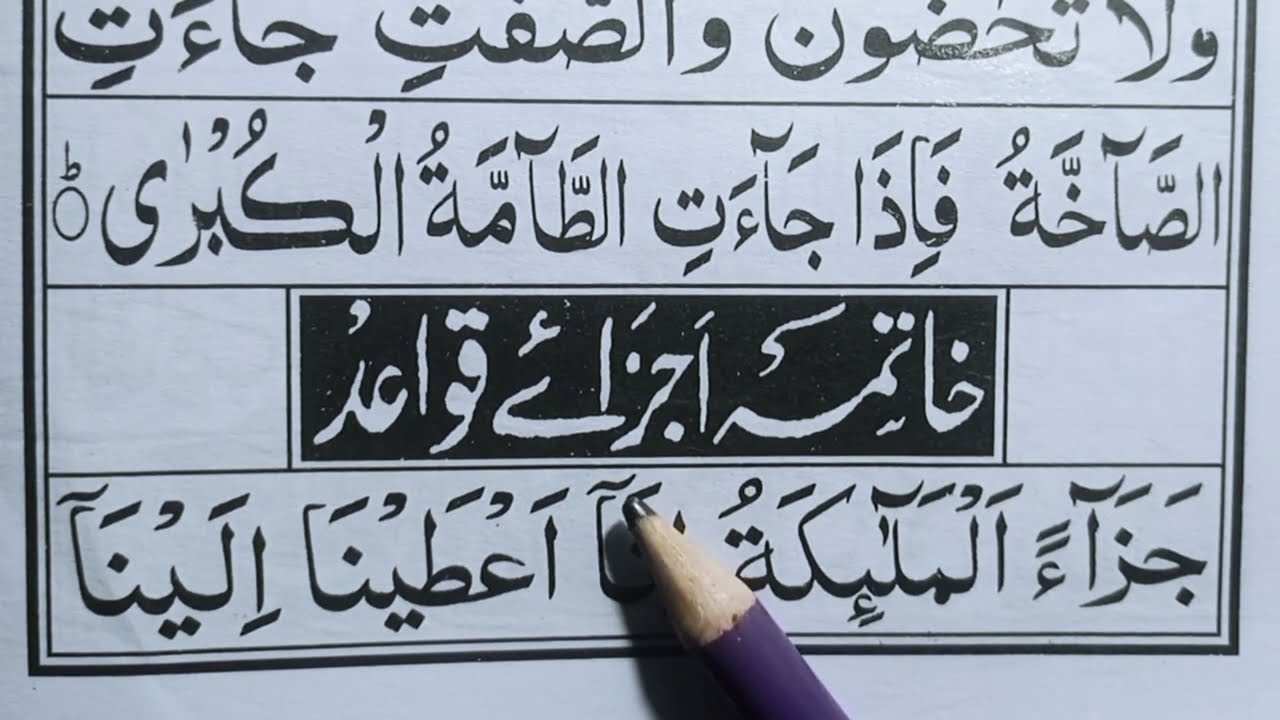 ولا تحٰضون والصّفٰتِ جاءَتِ
الصَّآخَّةُ فَاِذَا جَآءَتِ الطَّآمَّةُ الْكُبْرٰى ۝ؕ
خاتمہ اَجزَائے قواعد
جَزَآءً اَلْمَلٰٓئِكَةُ اَعْطَيْنَا اِلَيْنَآ